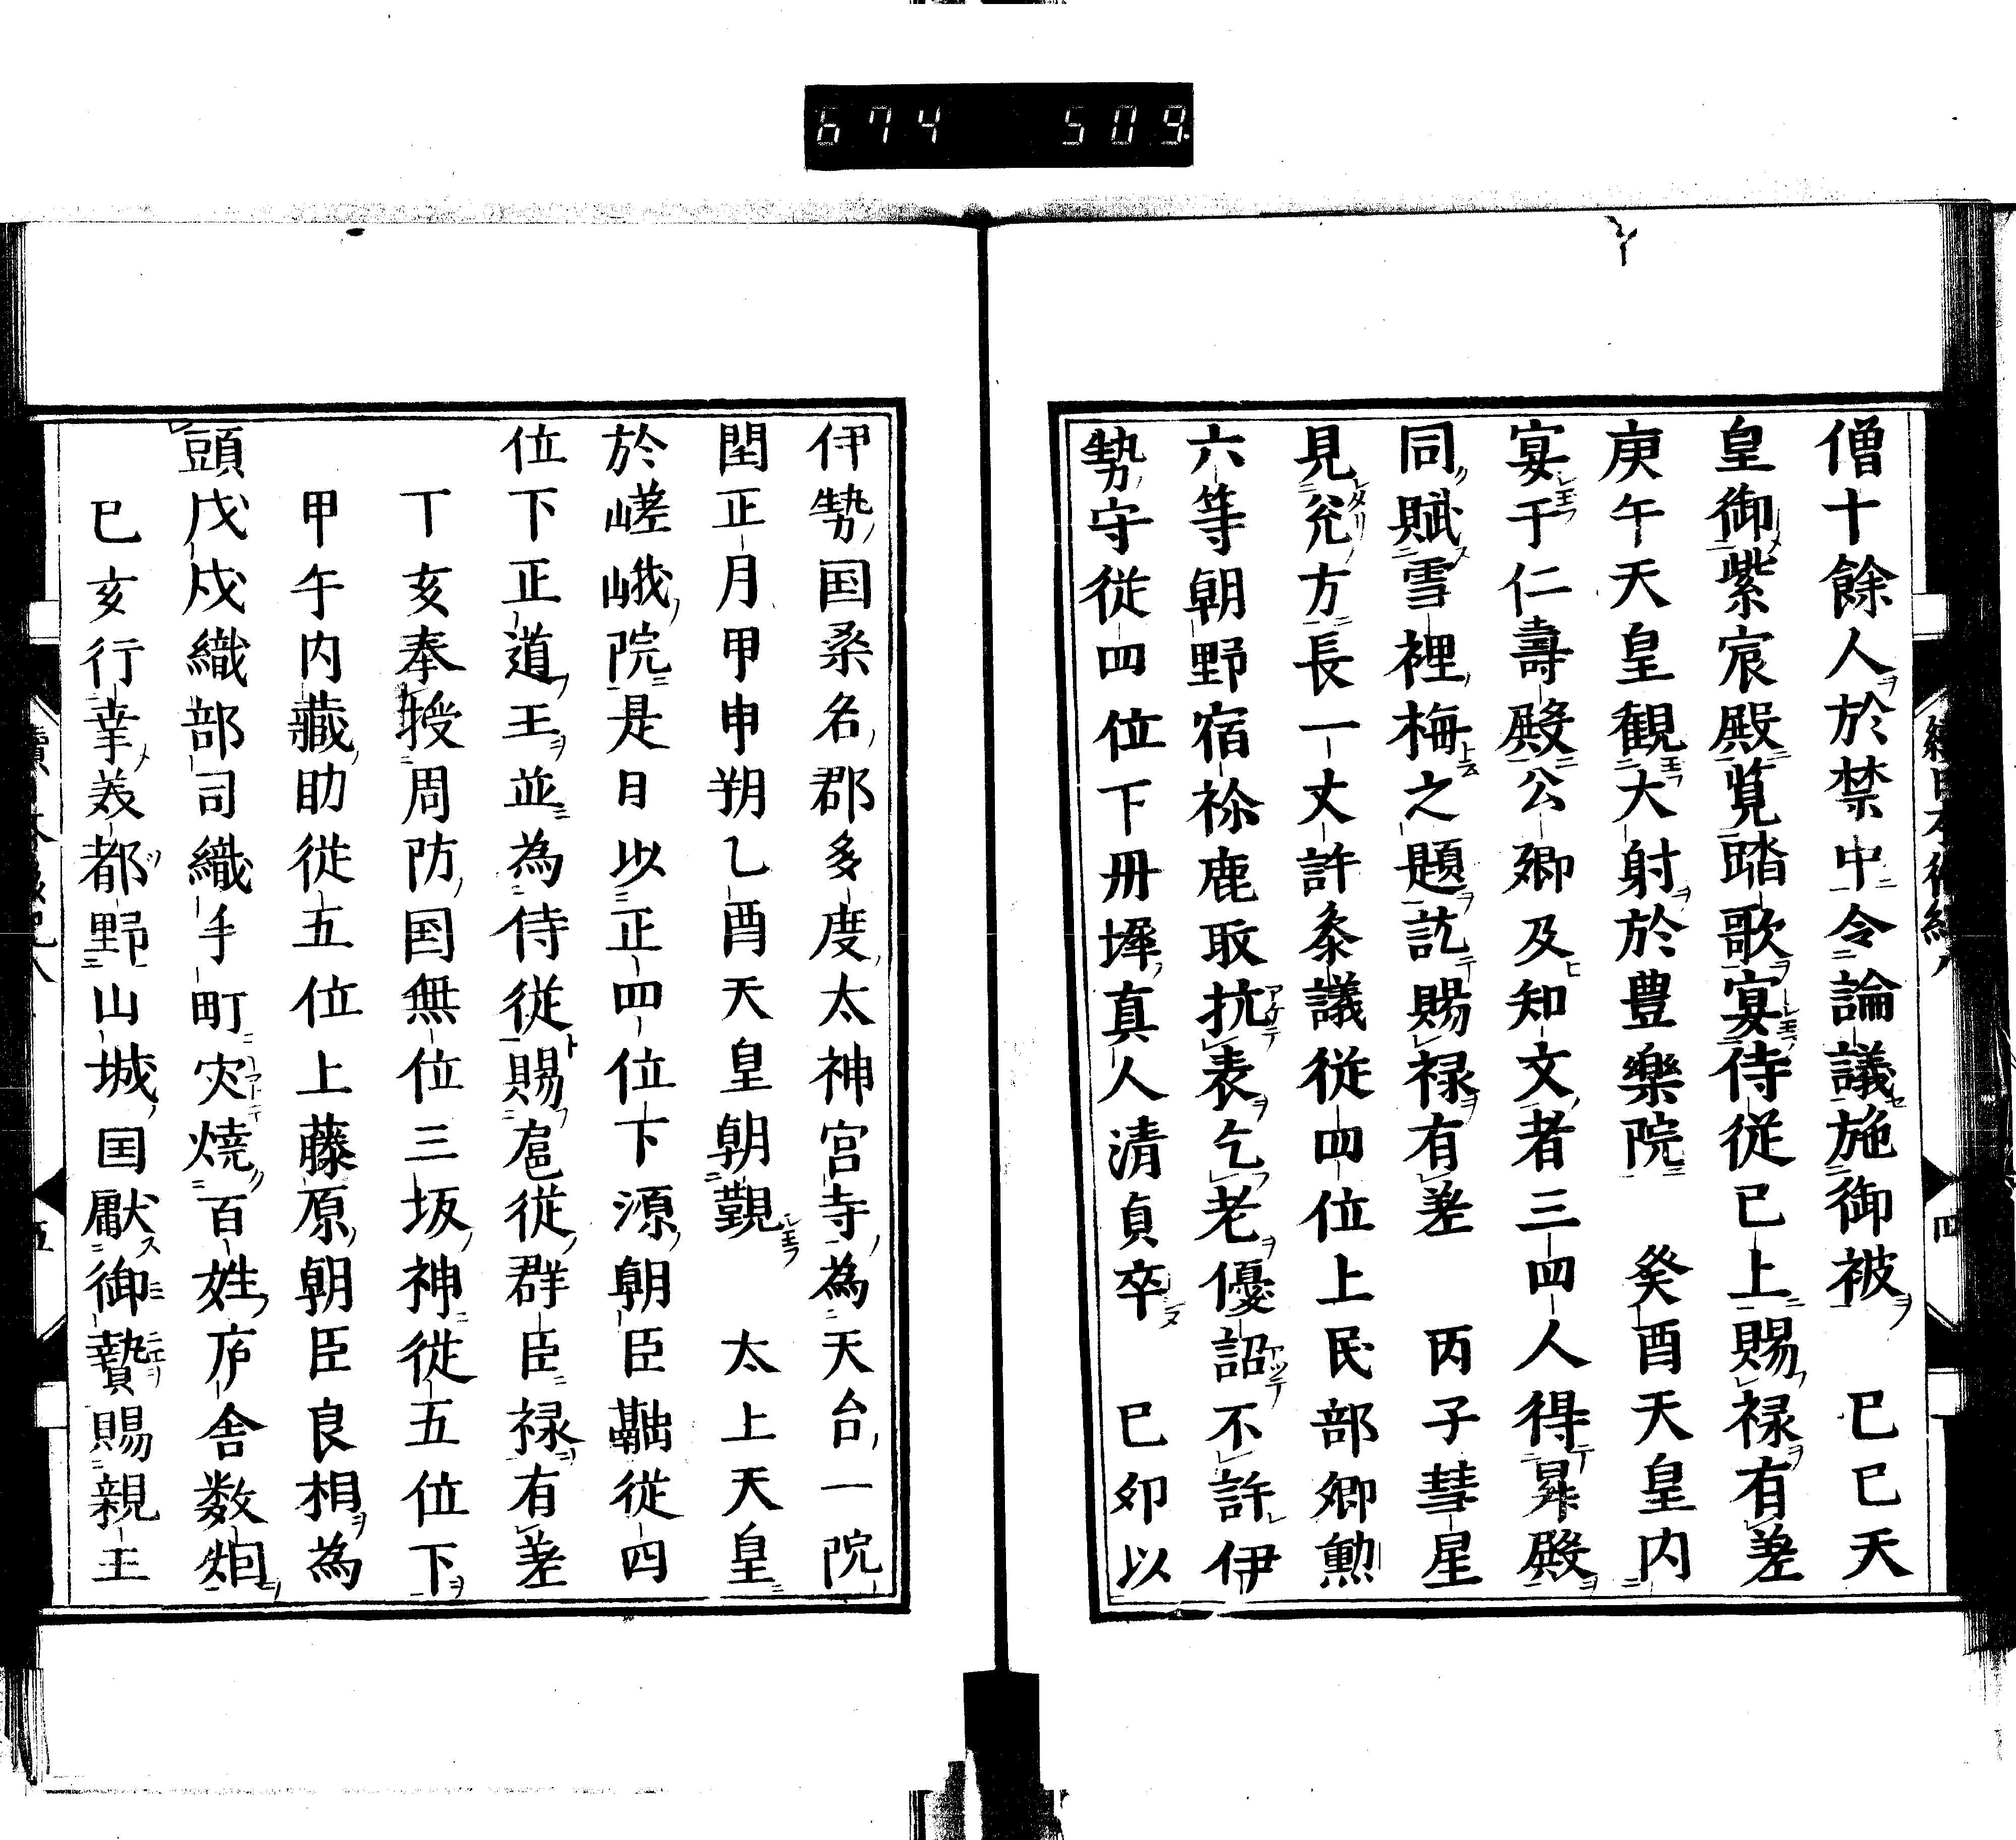 674 509
僧十餘人於禁中令論議施御被　已巳天
皇御紫宸殿覧踏歌宴侍従已上賜禄有差
庚午天皇観大射於豊樂院　癸酉天皇内
宴于仁壽殿公卿及知文者三四人得昇殿
同賦雪裡梅之題訖賜禄有差　丙子彗星
見兊方長一丈許叅議従四位上民部卿勲
六等朝野宿祢鹿取抗表乞老優詔不許伊
勢守従四位下冊墀真人清貞卒　已卯以
伊勢国桑名郡多度太神宮寺為天台一院
閏正月甲申朔乙酉天皇朝覲　太上天皇
於嵯峨院是日以正四位下源朝臣従四
位下正道王並為侍従賜扈従群臣禄有差
丁亥奉授周防国無位三坂神従五位下
甲午内藏助従五位上藤原朝臣良相為
頭戊戌織部司織手町灾燒百姓庐舎数烟
已亥行幸美都野山城国獻御贄賜親王